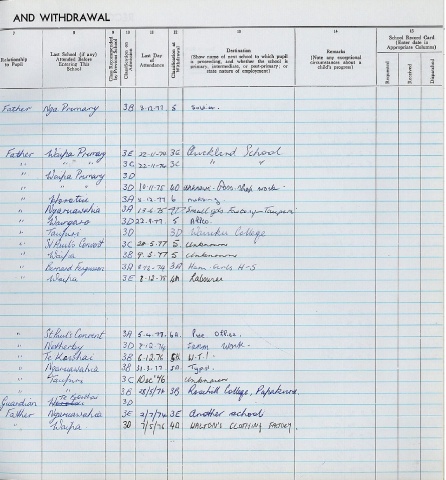 AND WITHDRAWAL
7 8 9 10 11 12 13 14 15
Relationship to Pupil
Last School (if any) Attended Before Entering This School
Class Recommended by Previous School
Classification on Admission
Last Day of Attendance
Classification at Withdrawal
Destination
(Show name of next school to which pupil is proceeding, and whether the school is primary, intermediate, or post-primary; or state nature of employment)
Remarks
(Note any exceptional circumstances about a child's progress)
School Record Card
(Enter date in Appropriate Column)
Requested
Received
Despatched
Father Nga Primary 3B 5
Father Waipa Primary 3E 22-11-74 3E Auckland School
" " " 3C 22-11-74 3C " "
" Waipa Primary 3D
" " " 3D 10-11-75 4D unknown - Poss. Shop work.
" Horotiu 3A 6 nursing
" Ngaruawahia 3A 13-6-75
" 3D 22-8-77 5
" Taupiri 3D 3D Waiuku College
" St Pauls Convent 3C 5 Unknown
" Waipa 3B 9-5-77 5 Unknown
" Bernard Fergusson 3A 3A Ham. Girls H-S
" Waipa 3E 8-12-75 4A Labourer
" St Paul's Convent 3A 5-4-77 6A Post Office.
" Netherby 3D 7-12-76 Farm Work.
" Te Kowhai 3B 6-12-76 5A W.T.I.
" Ngaruawahia 3B 31-3-77 5A Typist.
" Taupiri 3C 10 Dec '76 Unknown
" " 3B 28/5/74 3B Rosehill College, Papakura.
Guardian Te Kowhai 3D
Father Ngaruawahia 3E 2/7/74 3E another school
" Waipa 3D 7/5/76 4D WALTON'S CLOTHING FACTORY.